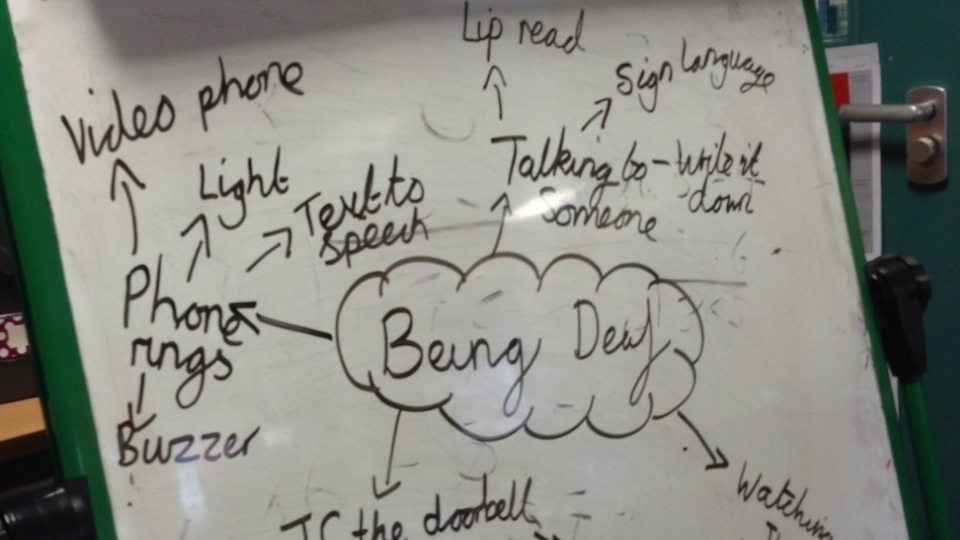 Lip read
Sign Language
Video phone
Talking to - Write it
someone down
Light
Text to
speech
Phone
rings
Being Deaf
Buzzer
the doorbell
Watching